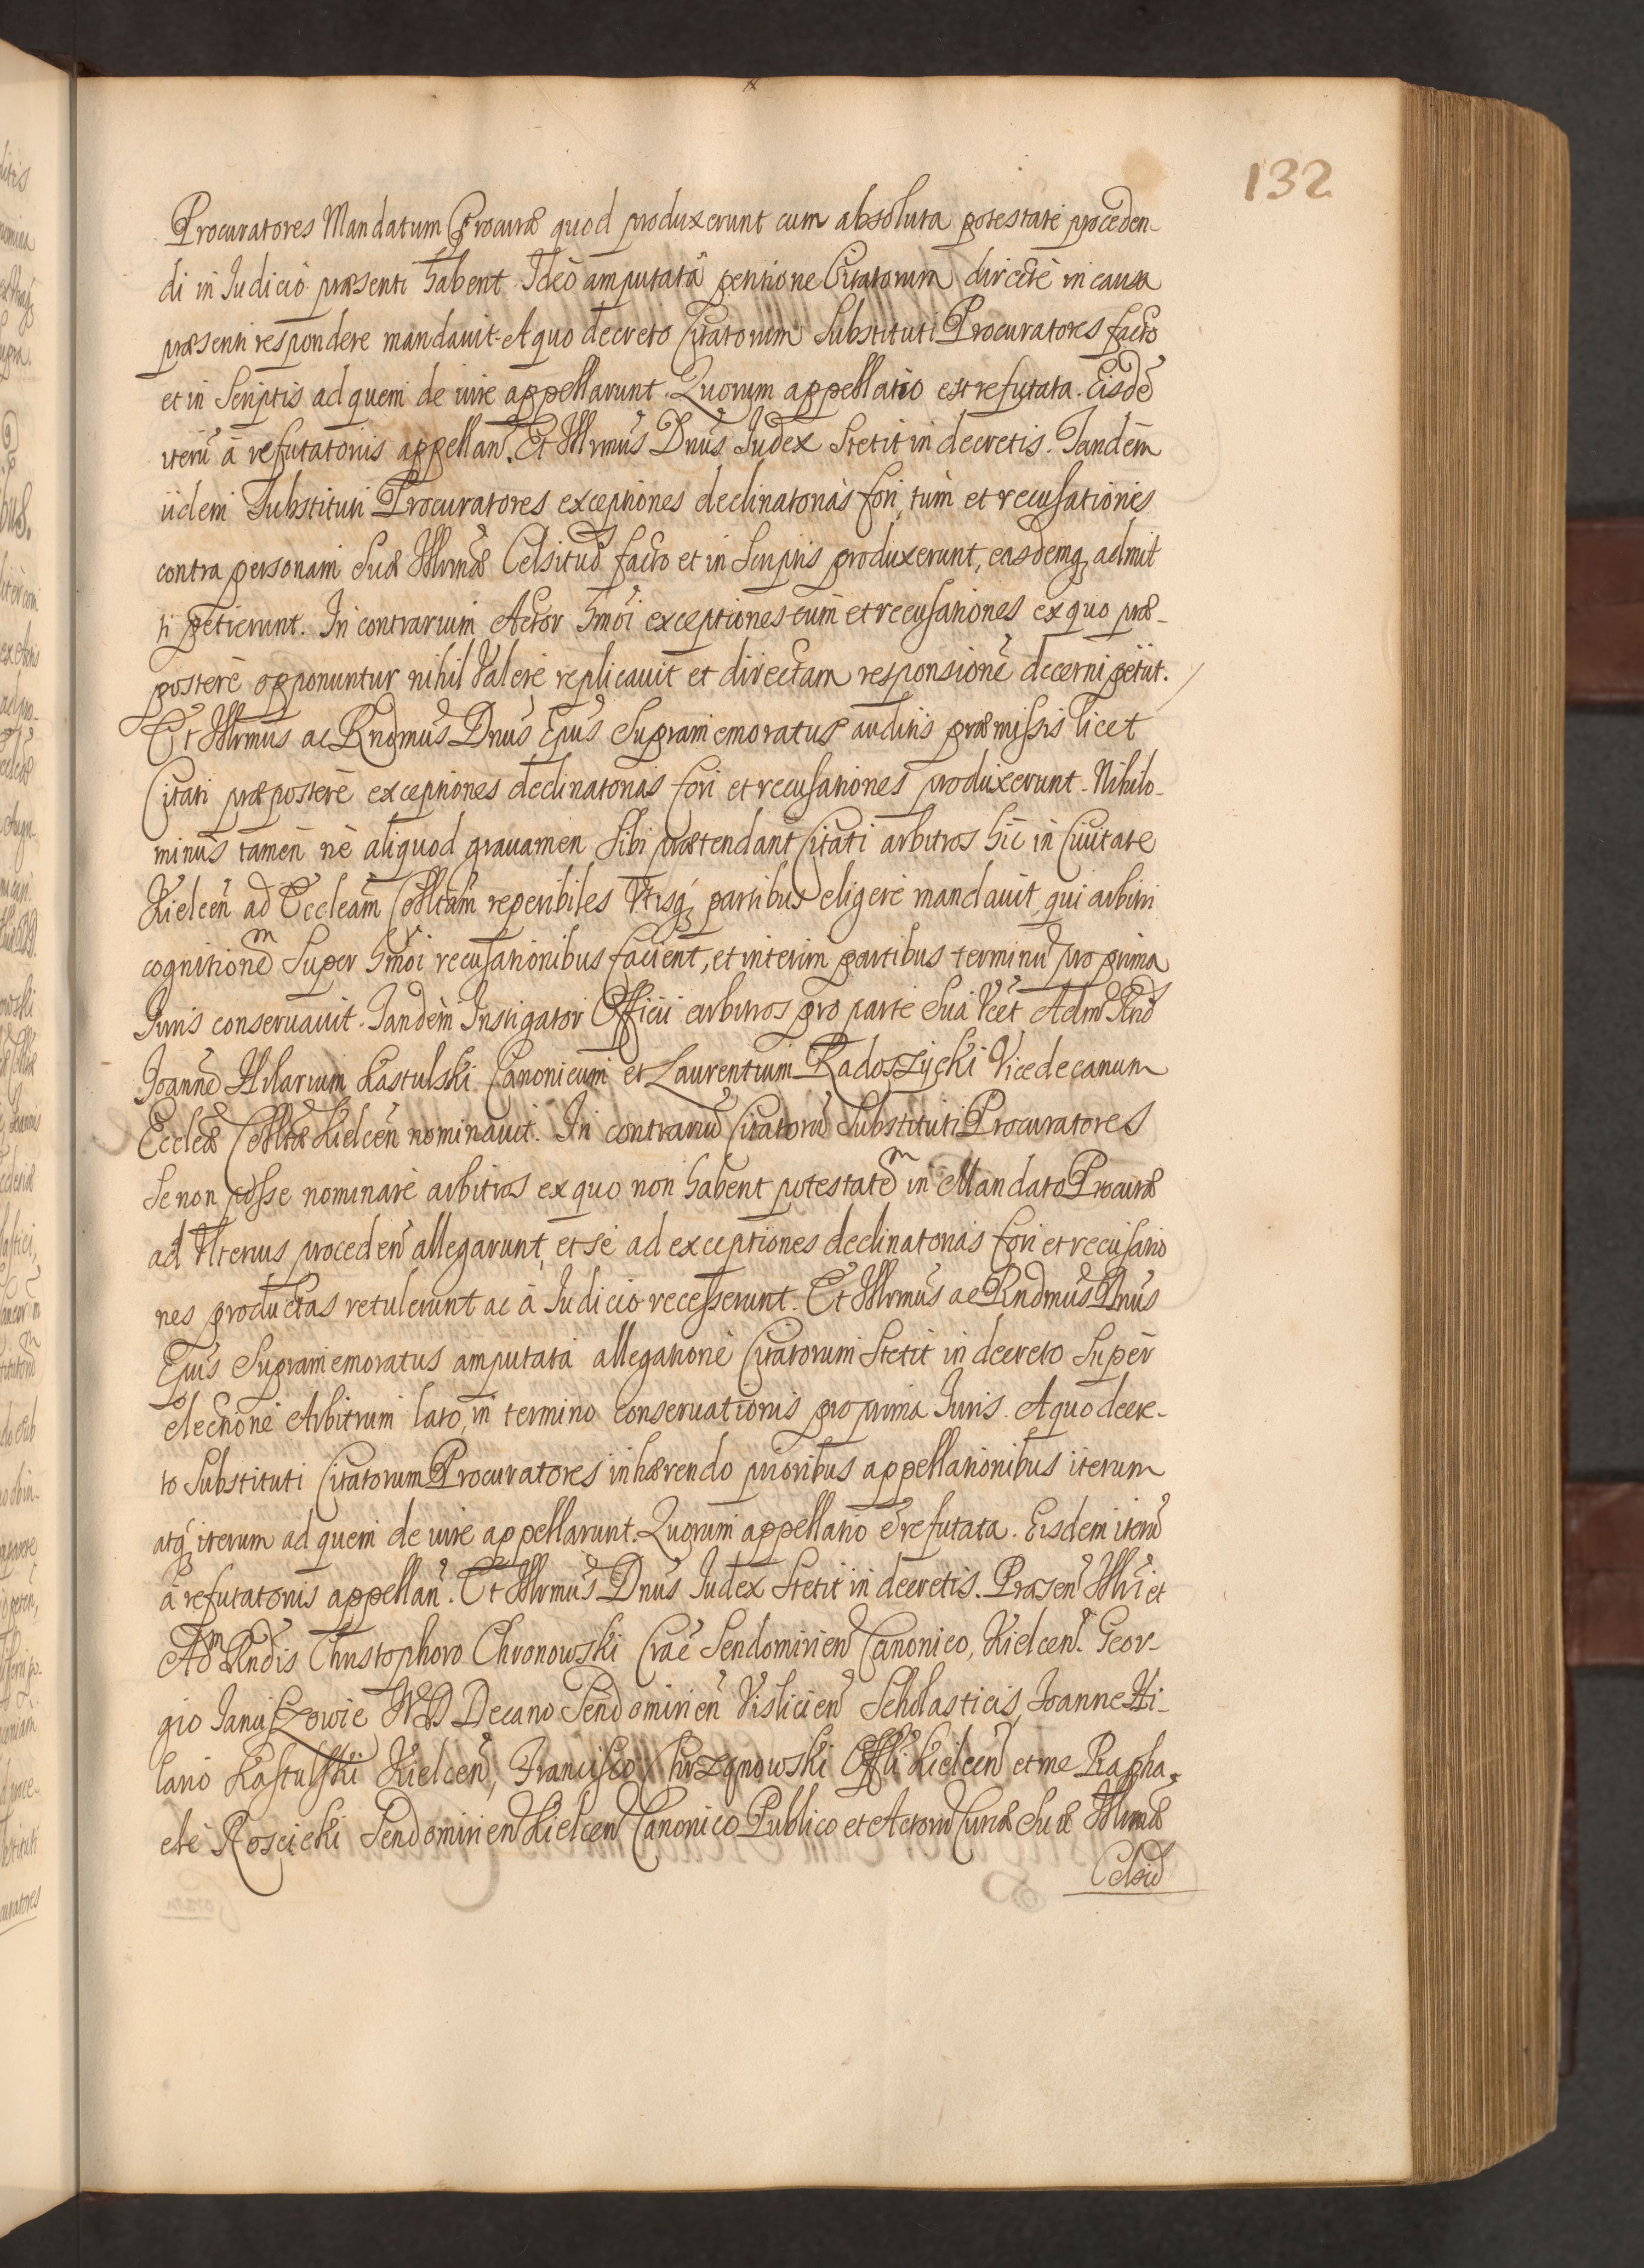 132
Procuratores Mandatum Procuræ quod produxerunt cum absoluta potestate proceden-
di in Judicio præsenti habent. Ideo amputatâ petitione Citatorum directè in causa
præsenti respondere mandavit. A quo decreto Citatorum Substituti Procuratores facto
et in Scriptis ad quem de iure appellarunt. Quorum appellatio est refutata. Eisdē
iterū à refutatoriis appellan̄. Et Illrmus Dnus Judex Stetit in decretis. Tandèm
iidem Substituti Procuratores exceptiones declinatorias fori, tùm et recusationis
contra personam Suæ Illrmæ Celsitud̄ facto et in Scriptis produxerunt, easdemq̨ admit
ti petierunt. In contrarium Actor hmōi exceptiones tùm et recusationes ex quo præ-
posterè opponuntur nihil Valere replicavit et directam responsionē decerni petiit.
Et Illrmus ac Rndmus Dnus Epūs Supramemoratus auditis præmissis licet
Citati præposterè exceptiones declinatorias fori et recusationes produxerunt. Nihilo-
minus tamèn nè aliquod gravamen Sibi prætendant Citati arbitros hîc in Civitate
Kielcēn ad Eccleām Colltām reperibiles Vtrisq̨ partibus eligere mandavit, qui arbitri
cognitionem Super hmōi recusationibus facient, et interim partibus terminū pro prima
Juris conservavit. Tandèm Instigator Officii arbitros pro parte Suâ Vcēt Adm̄ Rnd̄
Joannē Hilarium Kastulski Canonicum et Laurentium Radoszycki Vicedecanum
Eccleæ Colltæ Kielcēn nominavit. In contrariū Citatorū Substituti Procuratores
Se non posse nominare arbitros ex quo non habent potestatem in Mandato Procuræ
ad Vlterius proceden̄ allegarunt, et se ad exceptiones declinatorias fori et recusatio
nes productas retulerunt ac à Judicio recesserunt. Et Illrmus ac Rndmus Dnus
Epūs Supramemoratus amputatâ allegatione Citatorum Stetit in decreto Supèr
electione Arbitrum lato, in termino conservationis pro prima Juris. A quo decre-
to Substituti Citatorum Procuratores inhærendo prioribus appellationibus iterum
atq̨ iterum ad quem de iure appellarunt. Quorum appellatio ē refutata. Eisdem iterū
à refutatoriis appellan̄. Et Illrmus Dnus Judex Stetit in decretis. Præsen̄ Illri et
Adm Rndis Christophoro Chronowski Crac̄ Sendomirien̄ Canonico, Kielcen̄. Geor-
gio Januszowic Decano Sendomirien̄ Vislicien̄ Scholasticis, Joanne Hi-
lario Kastulski Kielcēn, Francisco Chrzanowski Offli Kielcēn et me Rapha-
ele Roscicki Sendomirien̄ Kielcen̄ Canonico Publico et Actorū Curiæ Suæ Illrmæ
Celsid̄